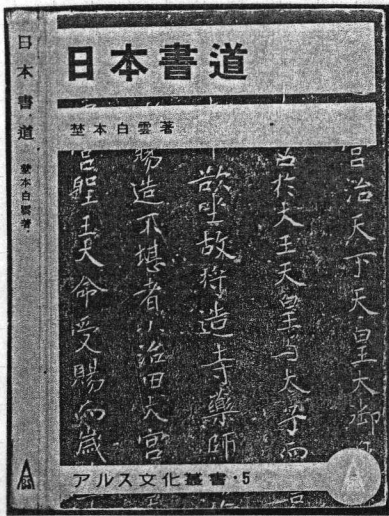 日本書道
埜本白雲著
日本書道
埜本白雲著
宮治天下天皇大御
召於大王天皇与太子而
欲坐故将造寺藥師
賜造不堪者小治田大宮
宮聖王大命受賜而歳
アルス文化叢書・5